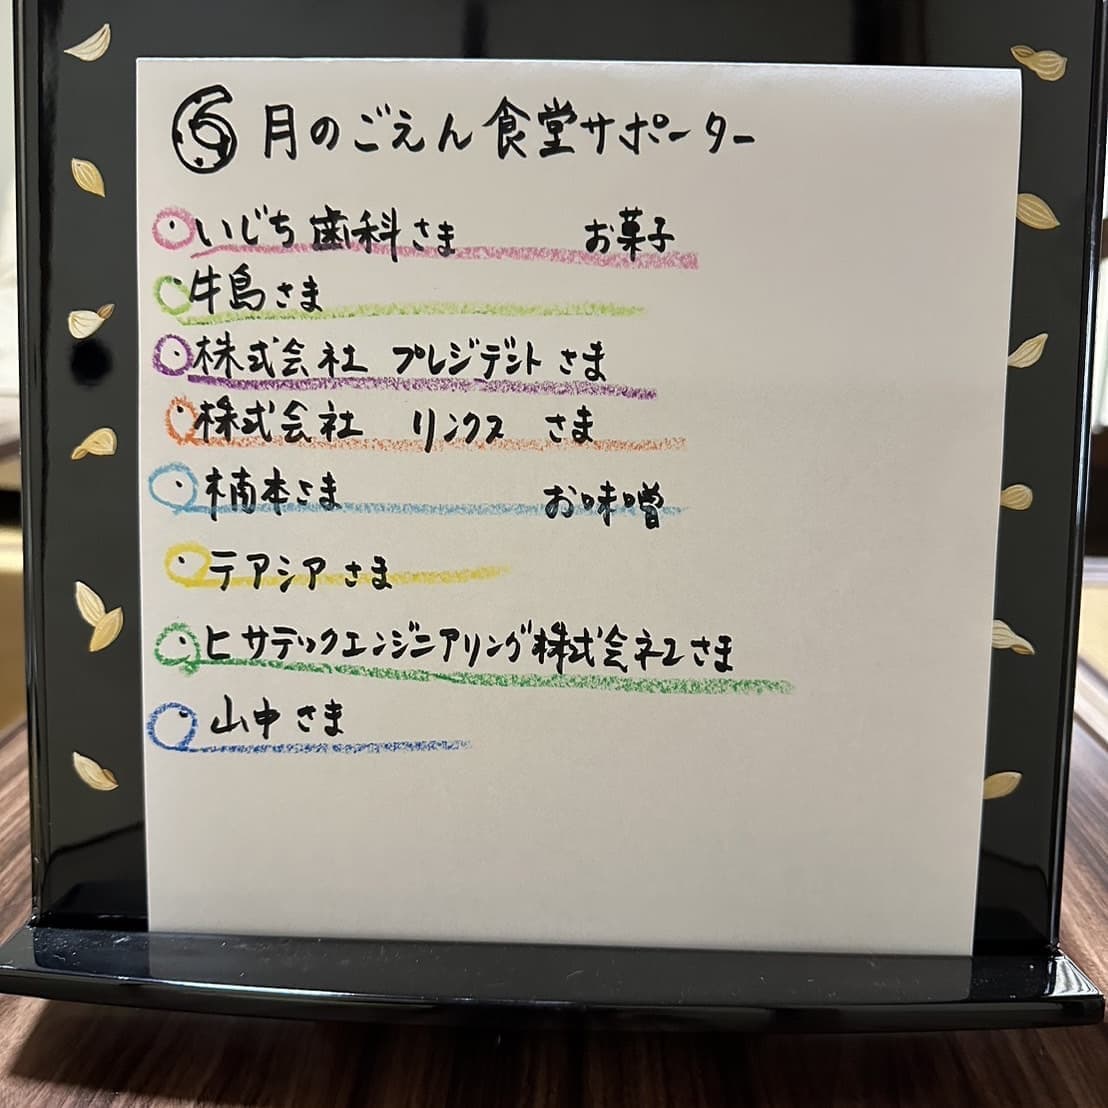 6月のごえん食堂サポーター
いじち歯科さま お菓子
牛島さま
株式会社 プレジデント さま
株式会社 リンクス さま
楠本さま お味噌
テアシアさま
ヒサテックエンジニアリング株式会社さま
山中さま